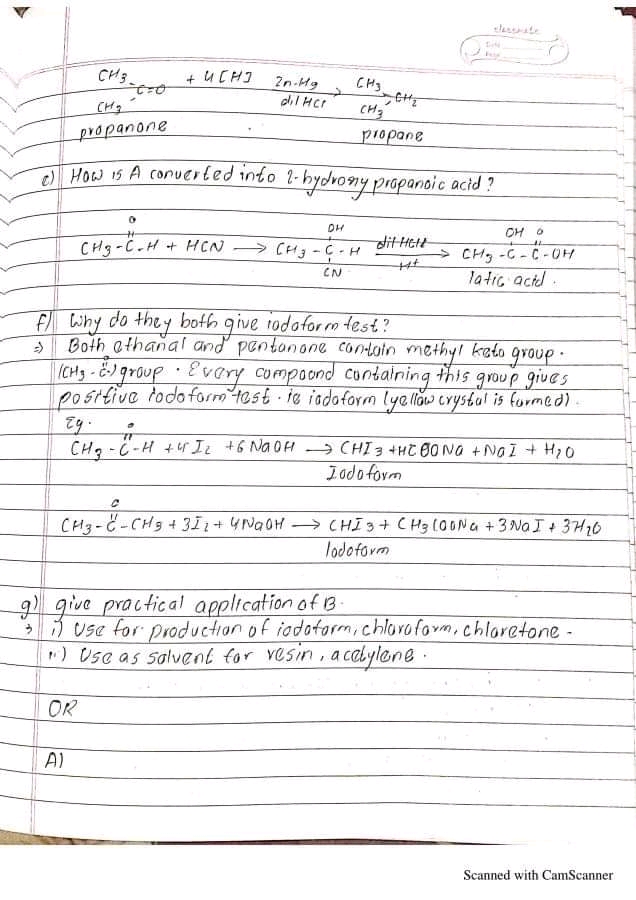 classmate
Date
Page
CH3
C=O + 4[H] Zn-Hg CH3
CH3 dil HCl CH3 CH2
propanone propane
e) How is A converted into 2-hydroxy propanoic acid?
O OH OH O
CH3-C-H + HCN → CH3-C-H dil·HCl → CH3-C-C-OH
CN H+ latic acid.
f) Why do they both give iodoform test?
⇒ Both ethanal and pentanone contain methyl keto group.
(CH3-C-) group. Every compound containing this group gives
positive iodoform test. ie iodoform (yellow crystal is formed).
Eg. O
CH3-C-H + 4I2 + 6NaOH → CHI3 + HCOONa + NaI + H2O
Iodoform
O
CH3-C-CH3 + 3I2 + 4NaOH → CHI3 + CH3COONa + 3NaI + 3H2O
Iodoform
g) give practical application of B.
⇒ i) Use for production of iodoform, chloroform, chloretone.
ii) Use as solvent for resin, acetylene.
OR
A)
Scanned with CamScanner